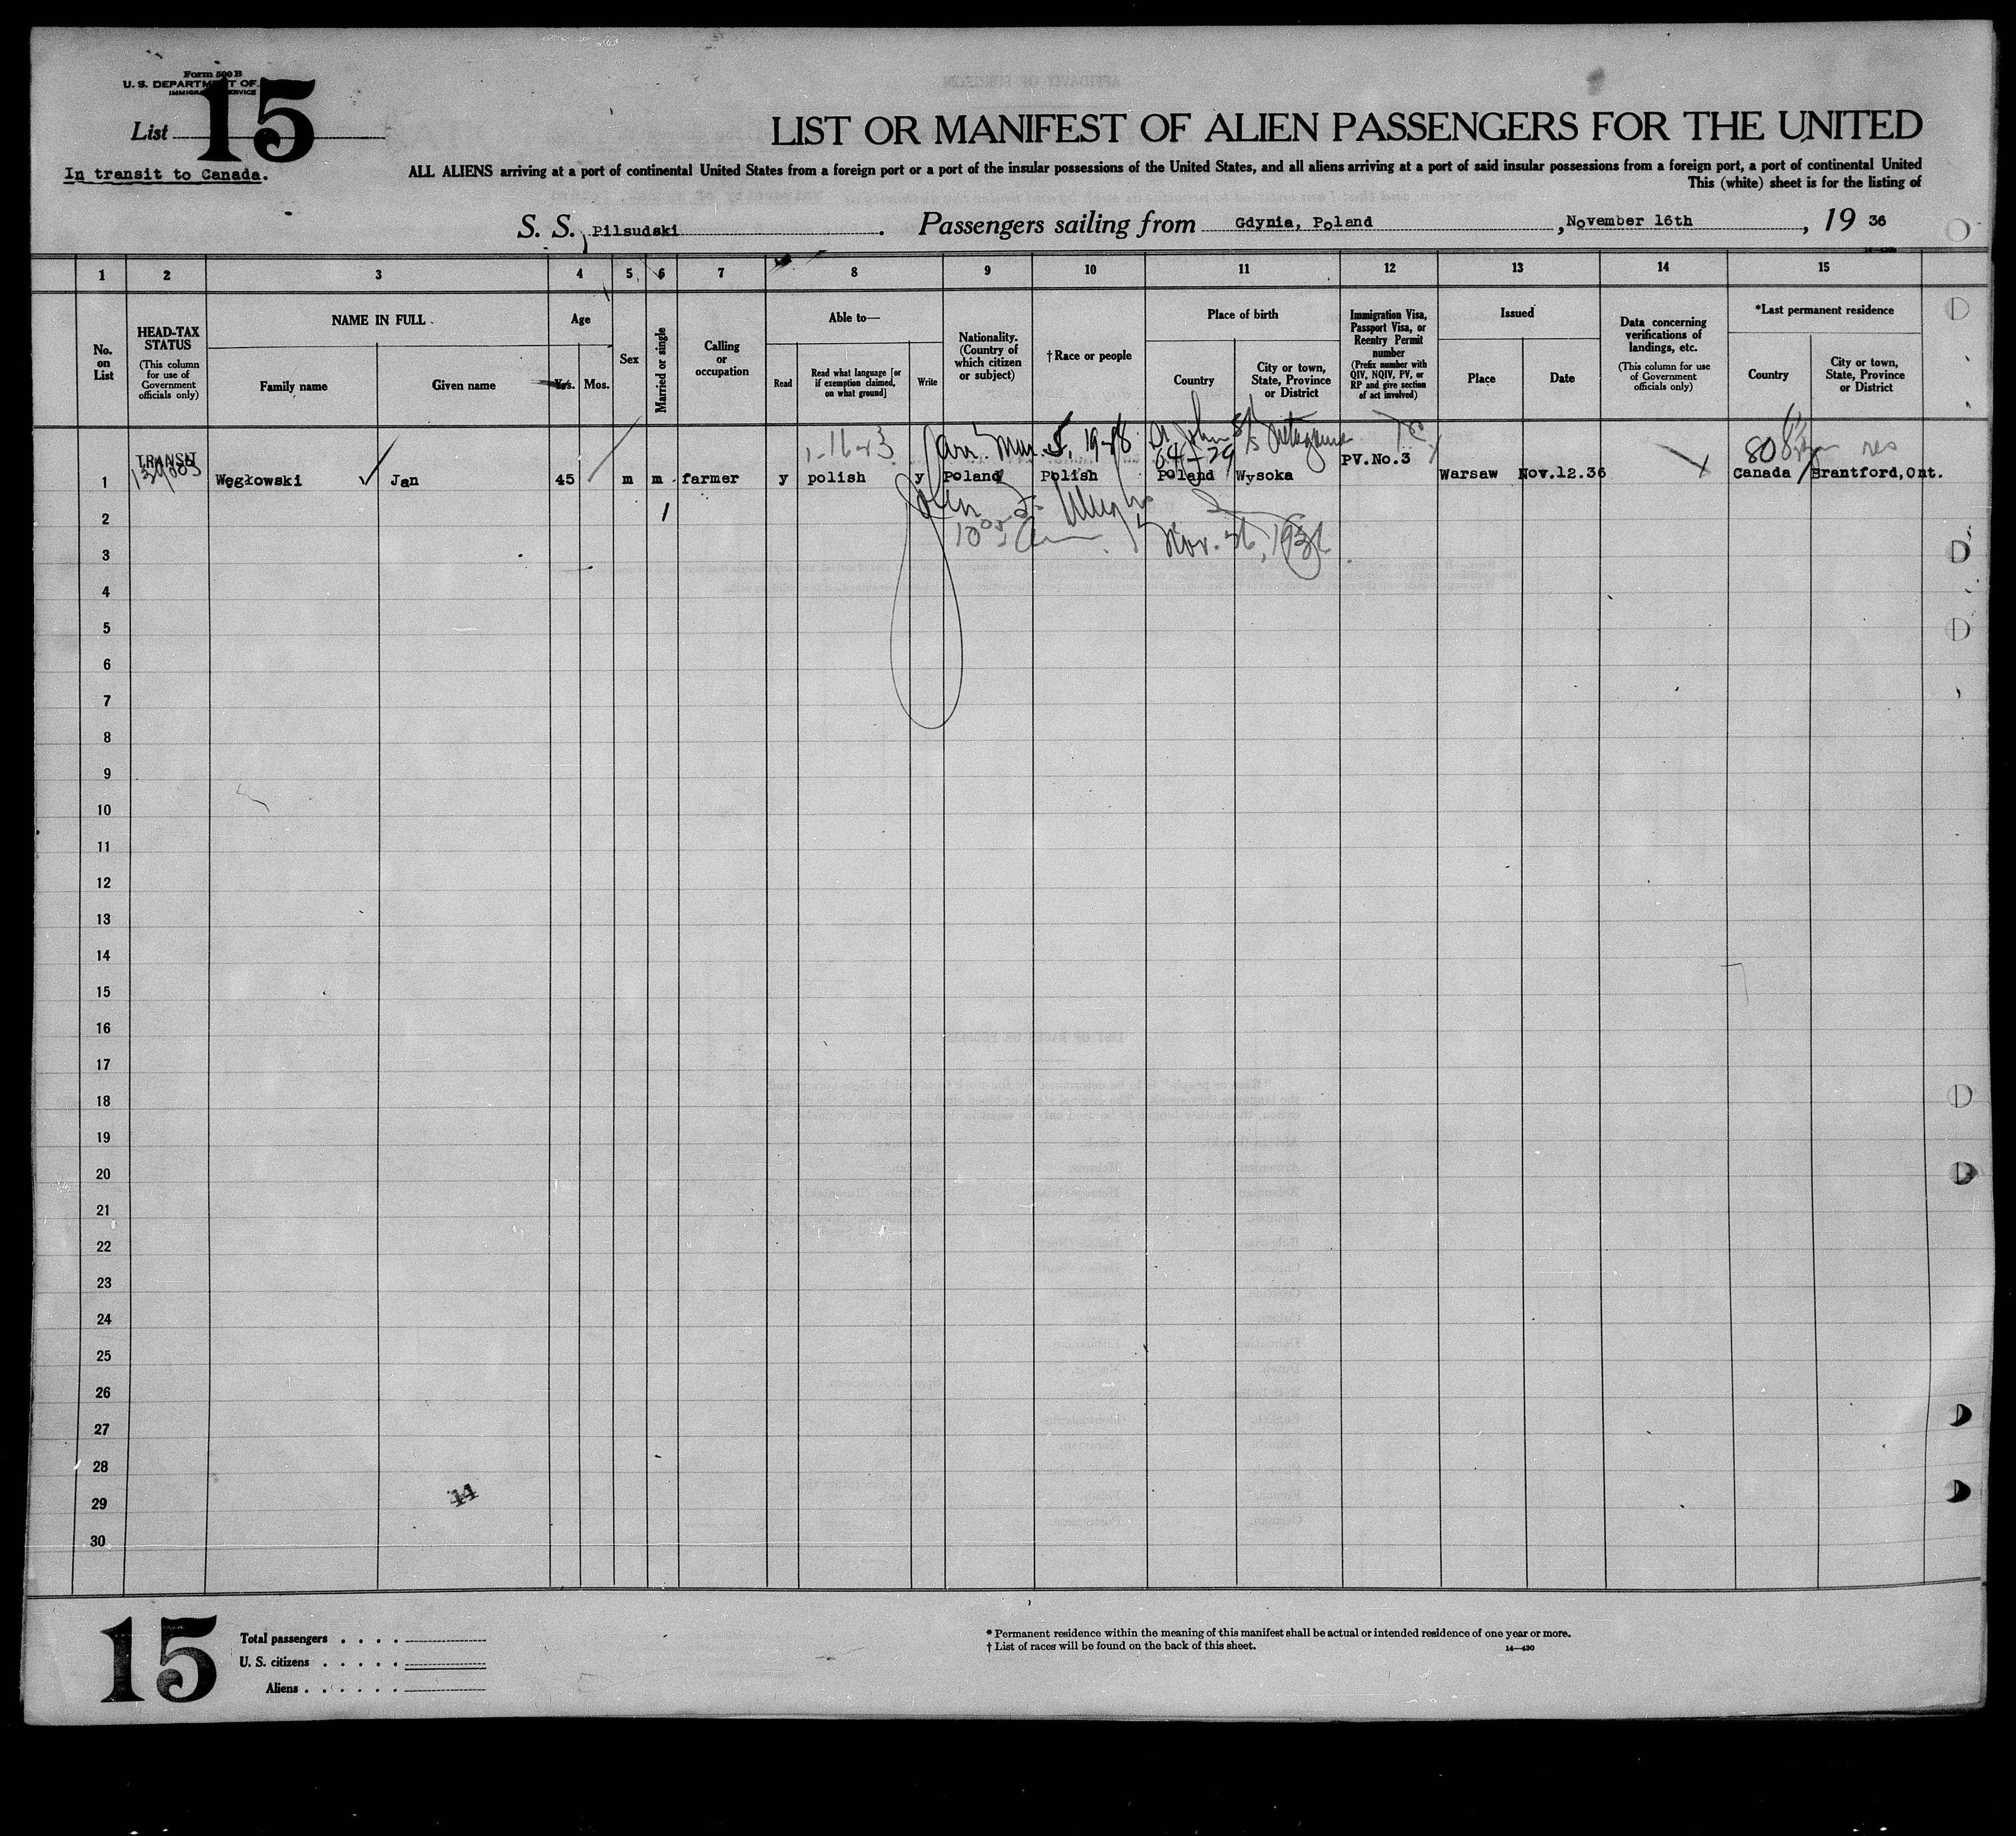 Form 500 B
U. S. DEPARTMENT OF
IMMIGRATION SERVICE
List 15
In transit to Canada.
LIST OR MANIFEST OF ALIEN PASSENGERS FOR THE UNITED
ALL ALIENS arriving at a port of continental United States from a foreign port or a port of the insular possessions of the United States, and all aliens arriving at a port of said insular possessions from a foreign port, a port of continental United
This (white) sheet is for the listing of
S. S. Pilsudski. Passengers sailing from Gdynia, Poland, November 16th, 19 36
1 2 3 4 5 6 7 8 9 10 11 12 13 14 15
No. on List
HEAD-TAX STATUS
(This column for use of Government officials only)
NAME IN FULL
Family name
Given name
Age
Yrs. Mos.
Sex
Married or single
Calling or occupation
Able to—
Read
Read what language [or if exemption claimed, on what ground]
Write
Nationality. (Country of which citizen or subject)
†Race or people
Place of birth
Country
City or town, State, Province or District
Immigration Visa, Passport Visa, or Reentry Permit number
(Prefix number with QIV, NQIV, PV, or RP and give section of act involved)
Issued
Place
Date
Data concerning verifications of landings, etc.
(This column for use of Government officials only)
*Last permanent residence
Country
City or town, State, Province or District
arr. Mar. 5, 1928 St John
TRANSIT
1 Węgłowski Jan 45 m m farmer y polish y Poland Polish Poland Wysoka PV.No.3 Warsaw Nov.12.36 Canada Brantford,Ont.
2
Nov. 26, 1936
3
4
5
6
7
8
9
10
11
12
13
14
15
16
17
18
19
20
21
22
23
24
25
26
27
28
29
14
30
15
Total passengers . . . .
U. S. citizens . . . . .
Aliens . . . . . .
* Permanent residence within the meaning of this manifest shall be actual or intended residence of one year or more.
† List of races will be found on the back of this sheet.
14—430